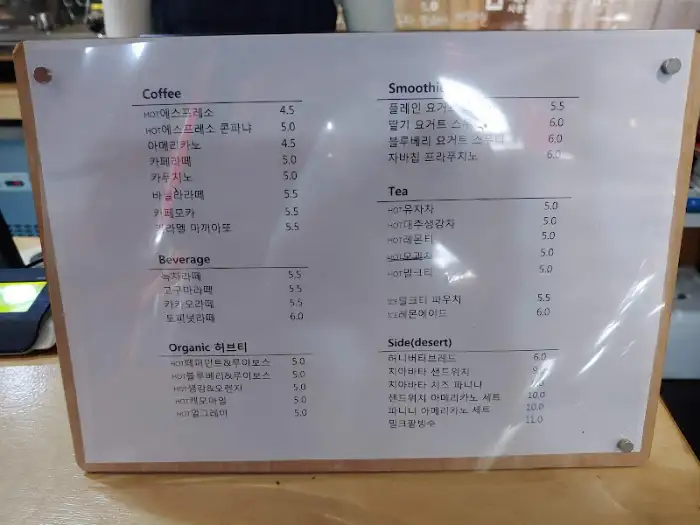 Coffee
HOT에스프레소 4.5
HOT에스프래소 콘파냐 5.0
아메리카노 4.5
카페라떼 5.0
카푸치노 5.0
바닐라라떼 5.5
카페모카 5.5
마끼아또 5.5
Beverage
녹차라떼 5.5
고구마라떼 5.5
카카오라떼 5.5
토피넛라떼 6.0
Organic 허브티
HOT페퍼민트&루이보스 5.0
HOT블루베리&루이보스 5.0
HOT생강&오렌지 5.0
HOT캐모마일 5.0
HOT얼그레이 5.0
Smoothie
플레인 요거트 5.5
딸기 요거트 스무디 6.0
블루베리 요거트 스무디 6.0
자바칩 프라푸치노 6.0
Tea
HOT유자차 5.0
HOT대추생강차 5.0
HOT레몬티 5.0
HOT모과차 5.0
HOT밀크티 5.0
밀크티 파우치 5.5
레몬에이드 6.0
Side(desert)
허니버터브레드 6.0
치아바타 샌드위치
치아바타 치즈 파니니
샌드위치 아메리카노 세트 10.0
파니니 아메리카노 세트 10.0
밀크팥빙수 11.0